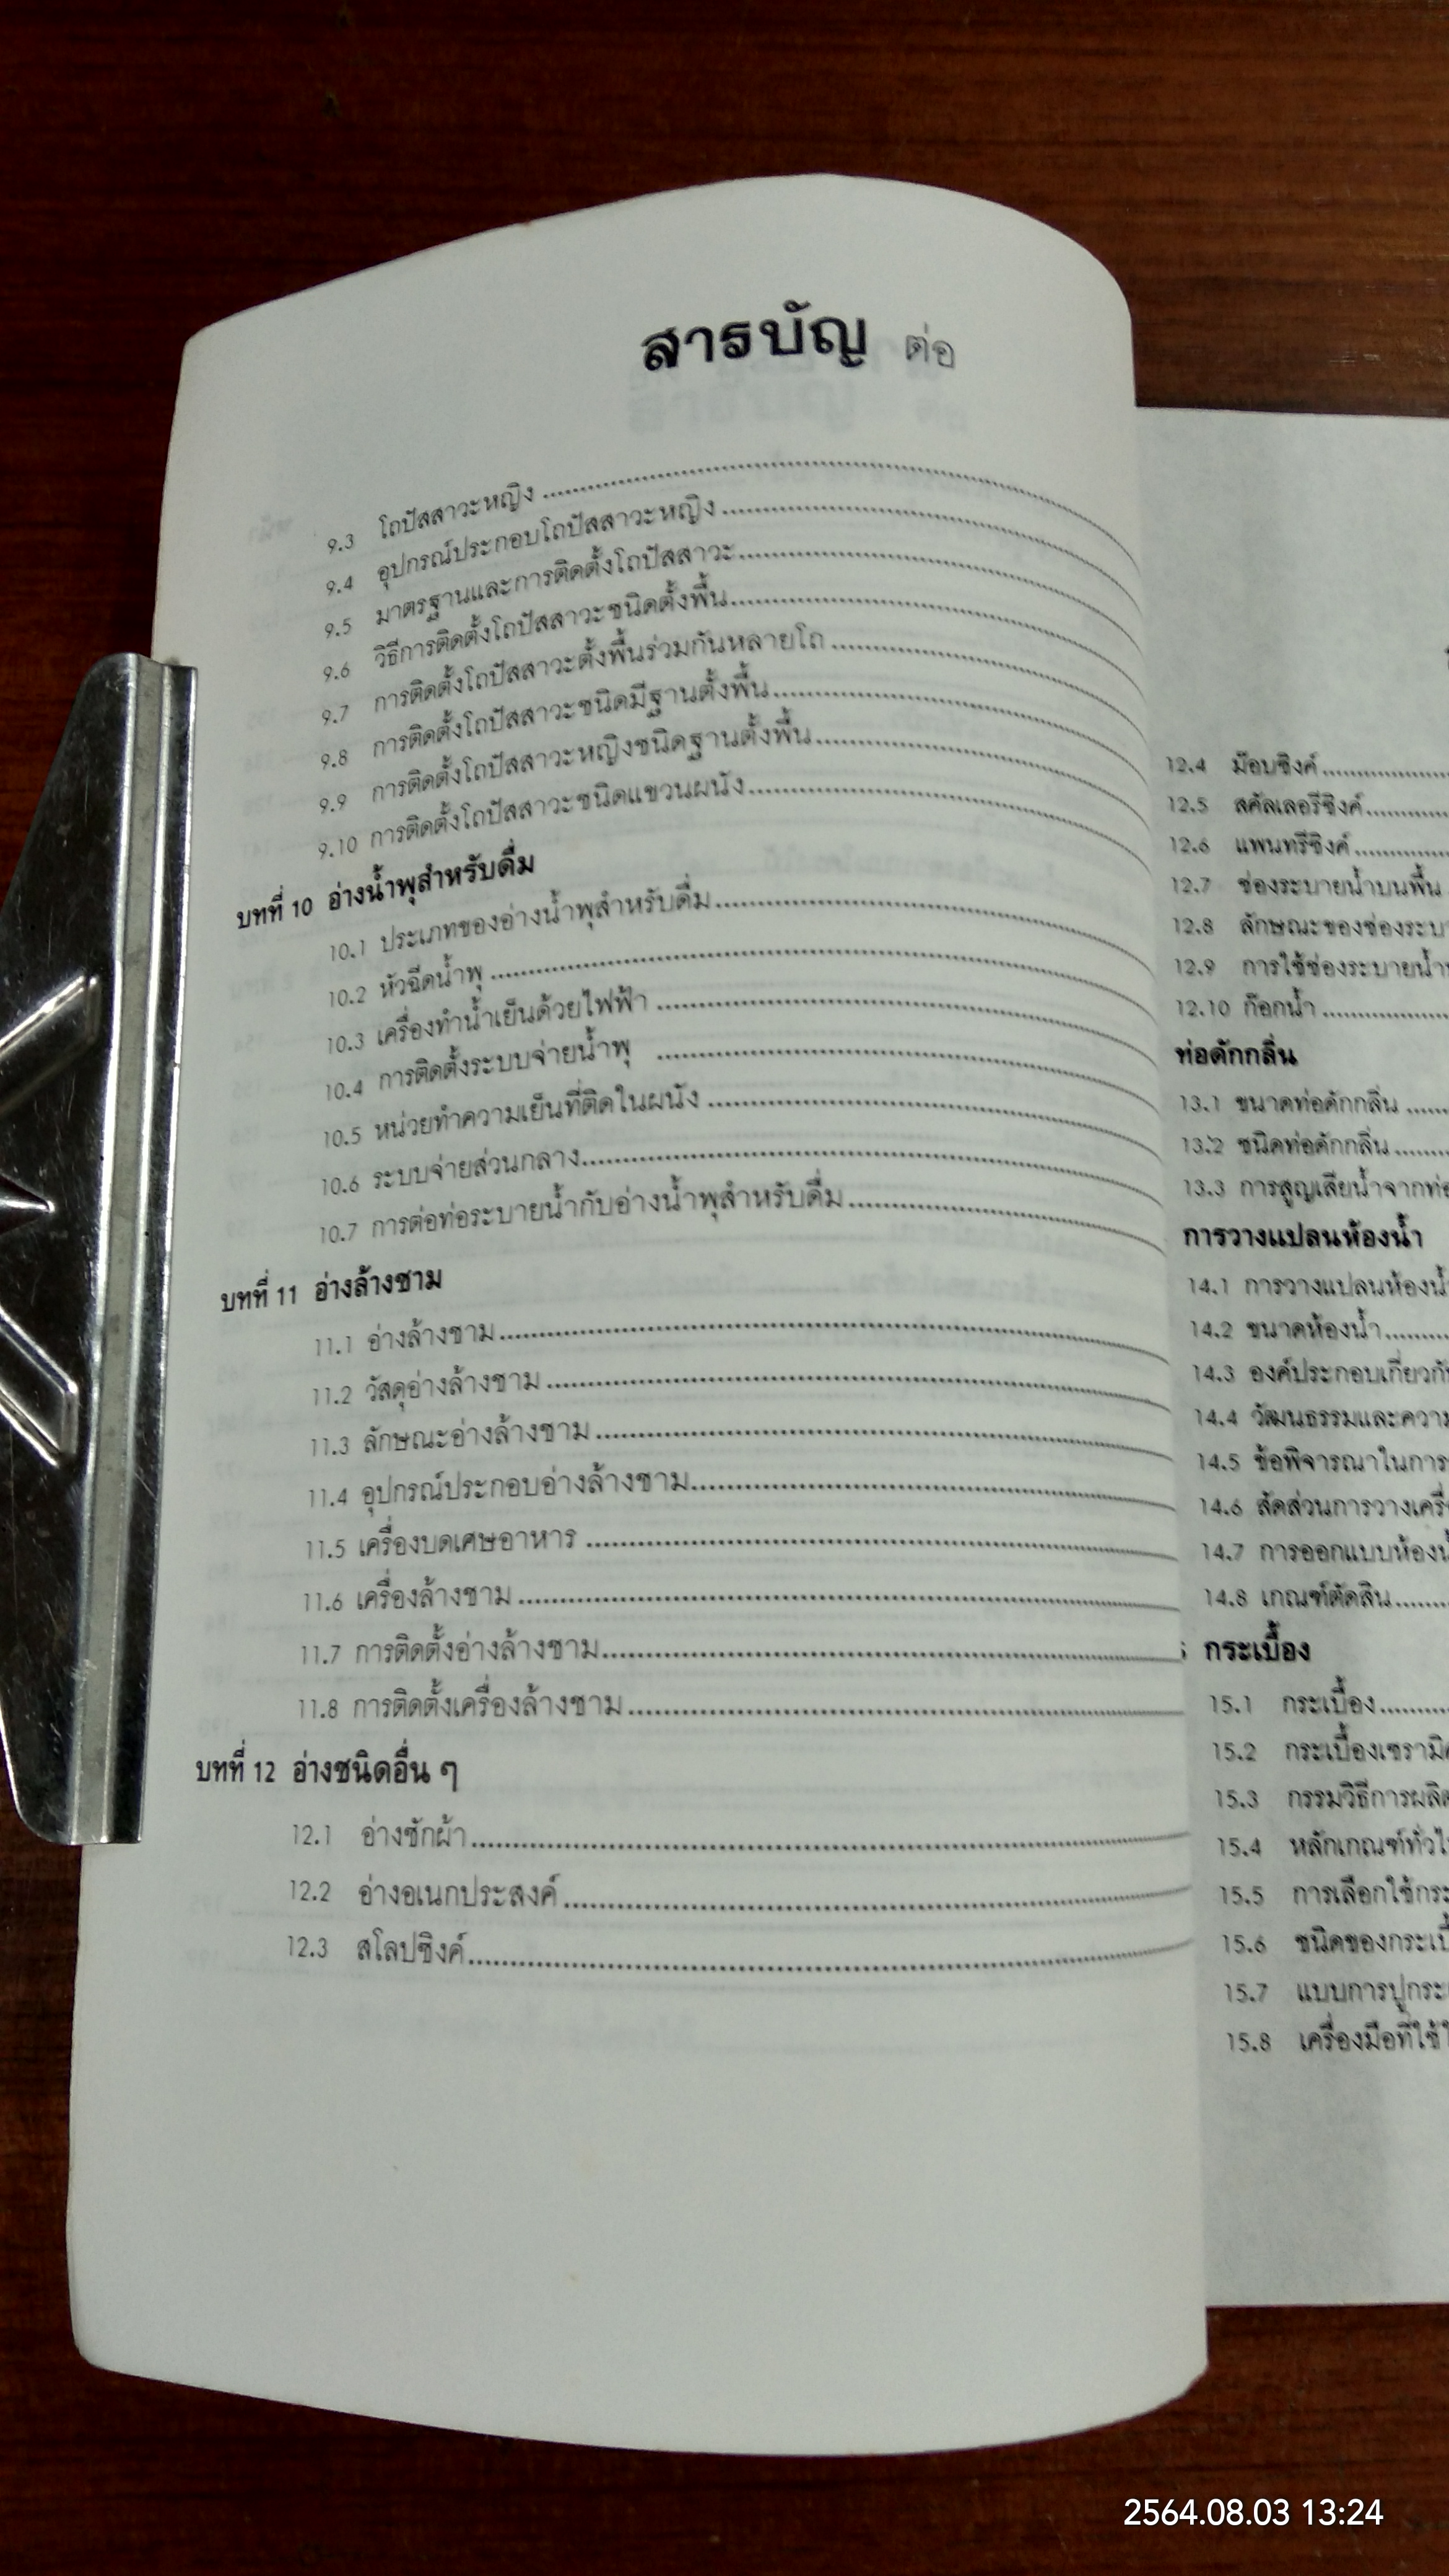 สารบัญ ต่อ
9.3 โถปัสสาวะหญิง
9.4 อุปกรณ์ประกอบโถปัสสาวะหญิง
9.5 มาตรฐานและการติดตั้งโถปัสสาวะ
9.6 วิธีการติดตั้งโถปัสสาวะชนิดตั้งพื้น
9.7 การติดตั้งโถปัสสาวะตั้งพื้นร่วมกันหลายโถ
9.8 การติดตั้งโถปัสสาวะชนิดมีฐานตั้งพื้น
9.9 การติดตั้งโถปัสสาวะหญิงชนิดฐานตั้งพื้น
9.10 การติดตั้งโถปัสสาวะชนิดแขวนผนัง
บทที่ 10 อ่างน้ำพุสำหรับดื่ม
10.1 ประเภทของอ่างน้ำพุสำหรับดื่ม
10.2 หัวฉีดน้ำพุ
10.3 เครื่องทำน้ำเย็นด้วยไฟฟ้า
10.4 การติดตั้งระบบจ่ายน้ำพุ
10.5 หน่วยทำความเย็นที่ติดในผนัง
10.6 ระบบจ่ายส่วนกลาง
10.7 การต่อท่อระบายน้ำกับอ่างน้ำพุสำหรับดื่ม
บทที่ 11 อ่างล้างชาม
11.1 อ่างล้างชาม
11.2 วัสดุอ่างล้างชาม
11.3 ลักษณะอ่างล้างชาม
11.4 อุปกรณ์ประกอบอ่างล้างชาม
11.5 เครื่องบดเศษอาหาร
11.6 เครื่องล้างชาม
11.7 การติดตั้งอ่างล้างชาม
11.8 การติดตั้งเครื่องล้างชาม
บทที่ 12 อ่างชนิดอื่น ๆ
12.1 อ่างซักผ้า
12.2 อ่างอเนกประสงค์
12.3 สโลปซิงค์
12.4 ม๊อบซิงค์
12.5 สคัลเลอรีซิงค์
12.6 แพนทรีซิงค์
12.7 ช่องระบายน้ำบนพื้น
12.8 ลักษณะของช่องระบา
12.9 การใช้ช่องระบายน้ำ
12.10 ก๊อกน้ำ
ท่อดักกลิ่น
13.1 ขนาดท่อดักกลิ่น
13.2 ชนิดท่อดักกลิ่น
13.3 การสูญเสียน้ำจากท่อ
การวางแปลนห้องน้ำ
14.1 การวางแปลนห้องน้ำ
14.2 ขนาดห้องน้ำ
14.3 องค์ประกอบเกี่ยวกับ
14.4 วัฒนธรรมและความ
14.5 ข้อพิจารณาในการ
14.6 สัดส่วนการวางเครื่
14.7 การออกแบบห้องน้
14.8 เกณฑ์ตัดสิน
กระเบื้อง
15.1 กระเบื้อง
15.2 กระเบื้องเซรามิ
15.3 กรรมวิธีการผลิต
15.4 หลักเกณฑ์ทั่วไ
15.5 การเลือกใช้กระ
15.6 ชนิดของกระเบื้
15.7 แบบการปูกระเ
15.8 เครื่องมือที่ใช้ใ
2564.08.03 13:24